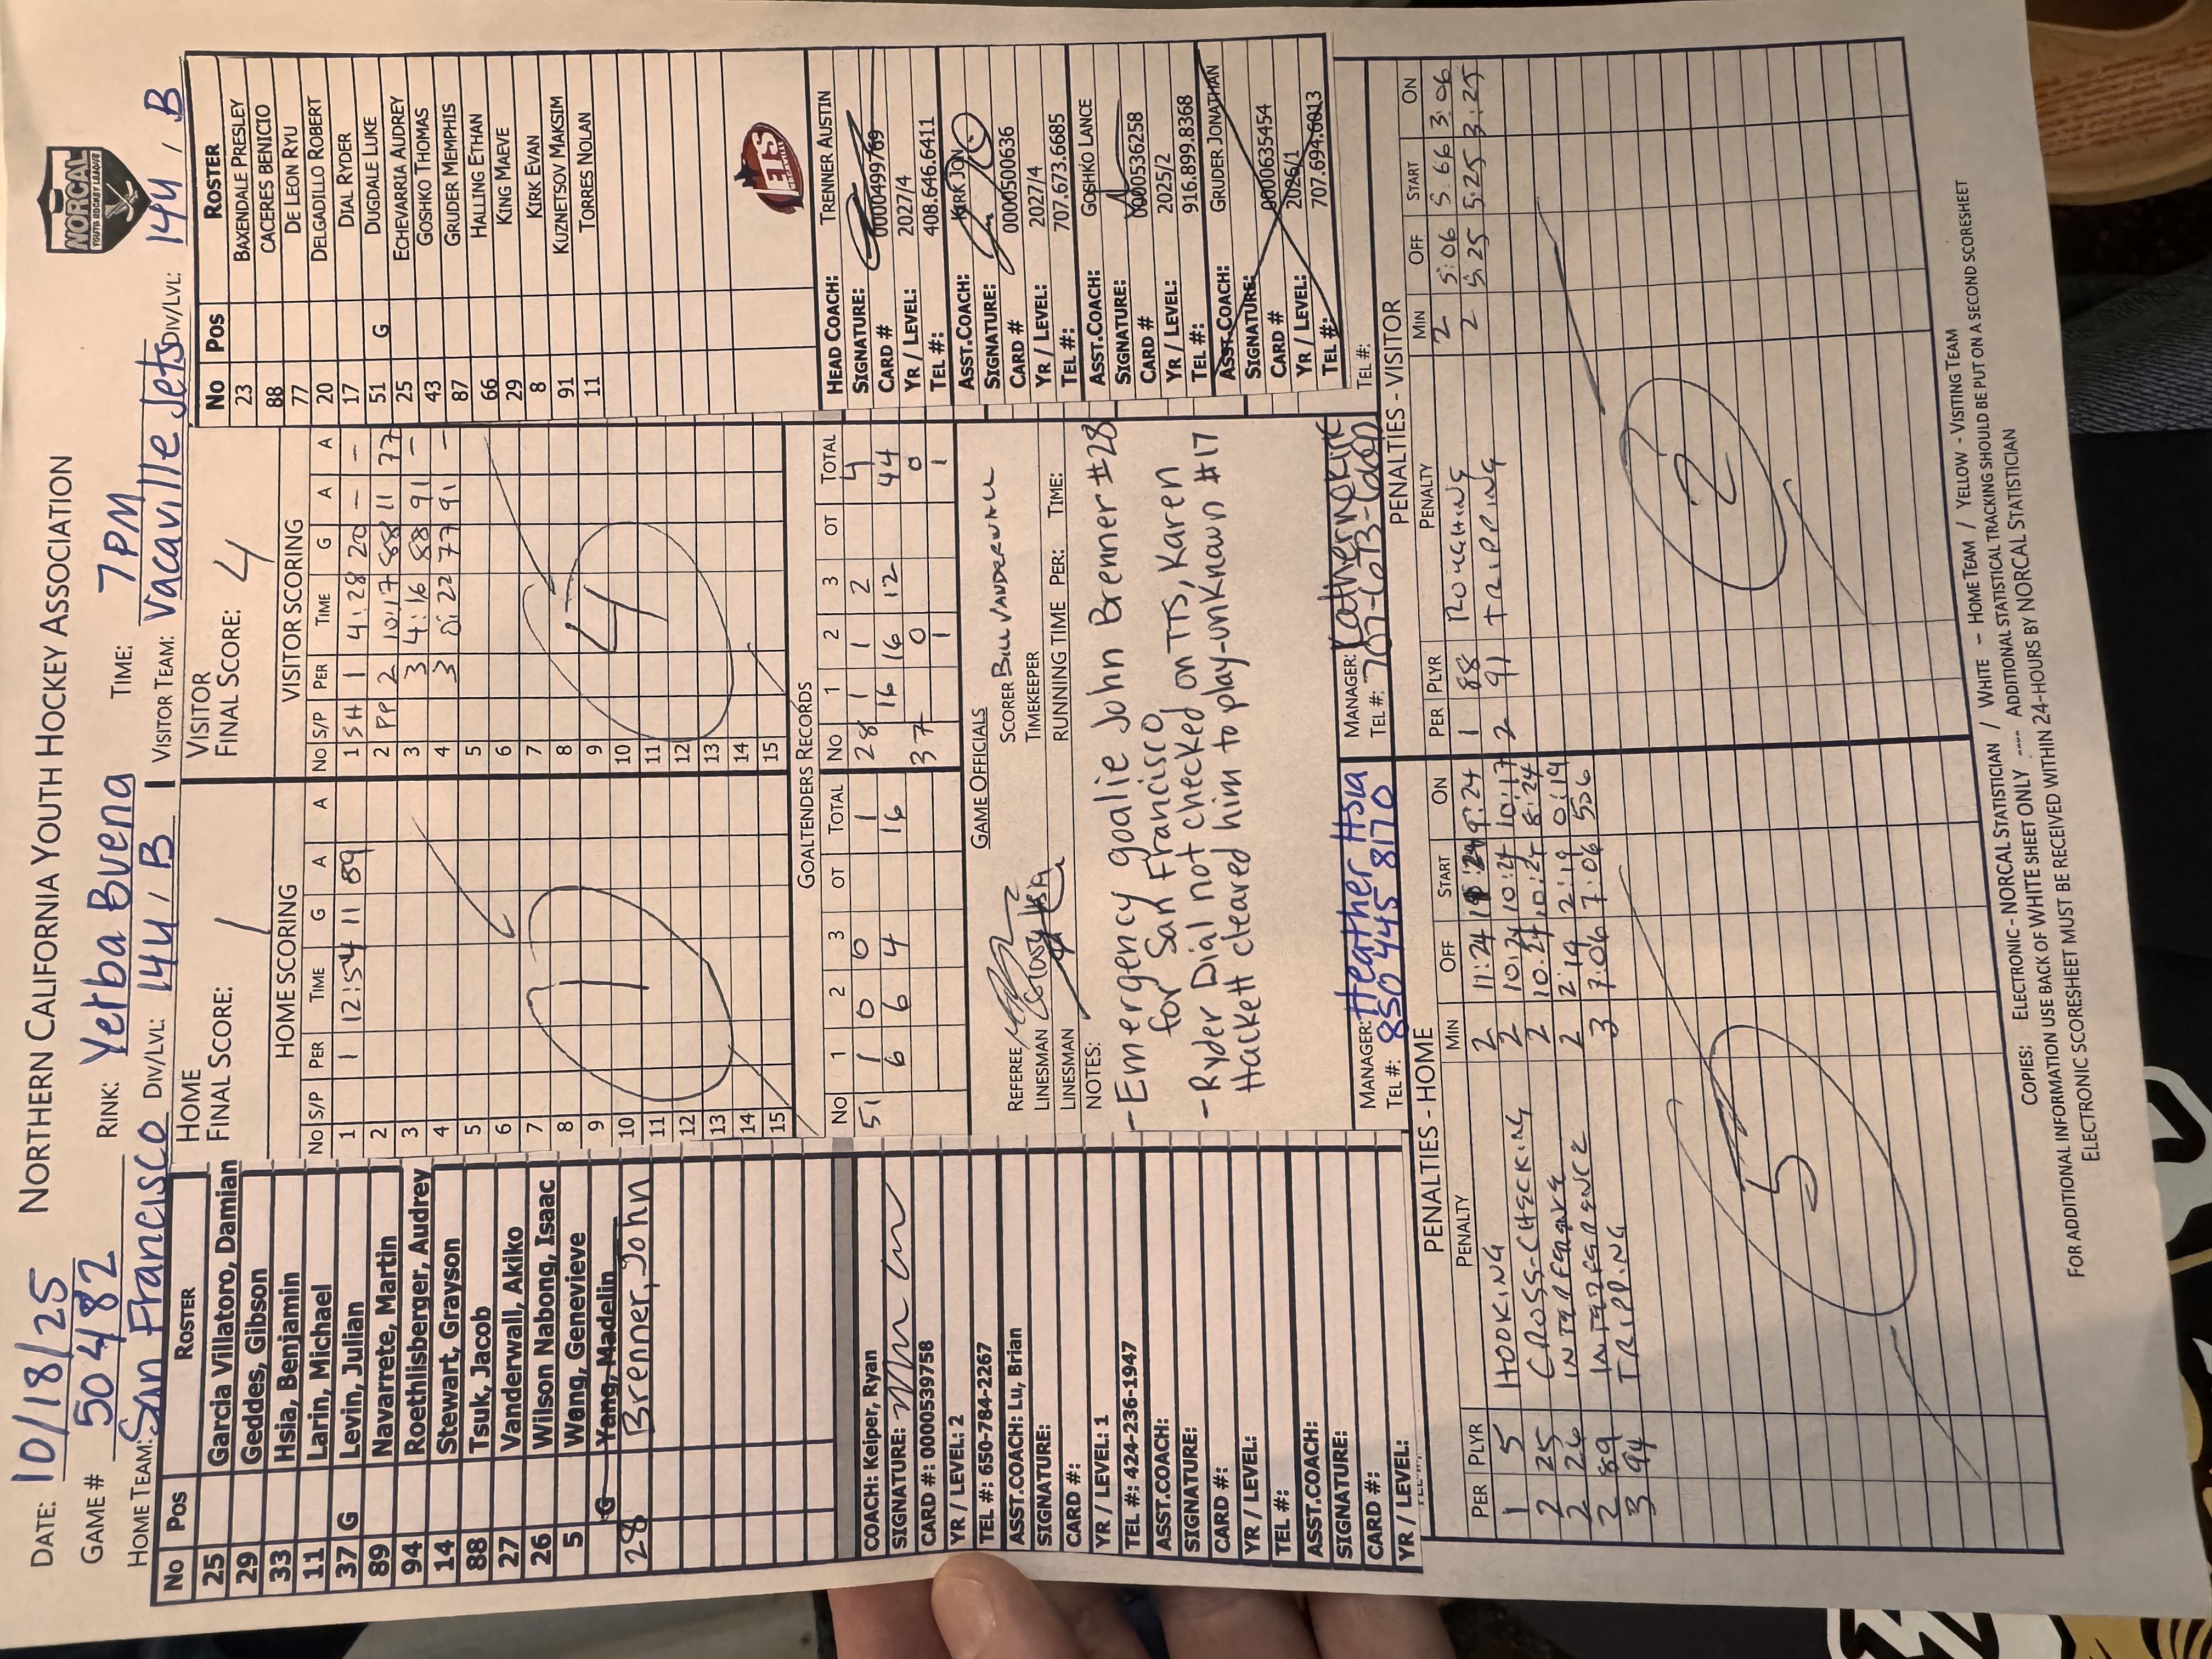 DATE: 10/18/25 NORTHERN CALIFORNIA YOUTH HOCKEY ASSOCIATION
GAME # 50482 RINK: Yerba Buena TIME: 7PM
NORCAL
YOUTH HOCKEY LEAGUE
HOME TEAM: San Francisco DIV/LVL: 14U, B VISITOR TEAM: Vacaville Jets DIV/LVL: 14U, B
No Pos ROSTER
25 Garcia Villatoro, Damian
29 Geddes, Gibson
33 Hsia, Benjamin
11 Larin, Michael
37 G Levin, Julian
89 Navarrete, Martin
94 Roethlisberger, Audrey
14 Stewart, Grayson
88 Tsuk, Jacob
27 Vanderwall, Akiko
26 Wilson Nabong, Isaac
5 Wang, Genevieve
G Yang, Madelin
28 Brenner, John
COACH: Keiper, Ryan
SIGNATURE:
CARD #: 0000539758
YR / LEVEL: 2
TEL #: 650-784-2267
ASST.COACH: Lu, Brian
SIGNATURE:
CARD #:
YR / LEVEL: 1
TEL #: 424-236-1947
ASST.COACH:
SIGNATURE:
CARD #:
YR / LEVEL:
TEL #:
ASST.COACH:
SIGNATURE:
CARD #:
YR / LEVEL:
HOME
FINAL SCORE: 1
HOME SCORING
No S/P PER TIME G A A
1 1 12:54 11 89
2
3
4
5
6
7
8
9
10
11
12
13
14
15
1
VISITOR
FINAL SCORE: 4
VISITOR SCORING
No S/P PER TIME G A A
1 SH 1 4:28 20 - -
2 PP 2 10:17 88 11 77
3 3 4:16 88 91 -
4 3 0:22 77 91 -
5
6
7
8
9
10
11
12
13
14
15
4
GOALTENDERS RECORDS
No 1 2 3 OT TOTAL No 1 2 3 OT TOTAL
51 1 0 0 1 28 1 1 2 4
6 6 4 16 16 16 12 44
37 0 0
1 1
GAME OFFICIALS
REFEREE SCORER Bill Vanderwall
LINESMAN TIMEKEEPER
LINESMAN RUNNING TIME PER: TIME:
NOTES:
- Emergency goalie John Brenner #28
for San Francisco
- Ryder Dial not checked on TTS, Karen
Hackett cleared him to play-unknawn #17
MANAGER: Heather Hsia MANAGER: Katherine Kirk
TEL #: 850 445 8170 TEL #: 707-673-
No Pos ROSTER
23 BAXENDALE PRESLEY
88 CACERES BENICIO
77 DE LEON RYU
20 DELGADILLO ROBERT
17 DIAL RYDER
51 G DUGDALE LUKE
25 ECHEVARRIA AUDREY
43 GOSHKO THOMAS
87 GRUDER MEMPHIS
66 HALLING ETHAN
29 KING MAEVE
8 KIRK EVAN
91 KUZNETSOV MAKSIM
11 TORRES NOLAN
JETS
HEAD COACH: TRENNER AUSTIN
SIGNATURE:
CARD # 0000499769
YR / LEVEL: 2027/4
TEL #: 408.646.6411
ASST.COACH: KIRK JON
SIGNATURE:
CARD # 0000500636
YR / LEVEL: 2027/4
TEL #: 707.673.6685
ASST.COACH: GOSHKO LANCE
SIGNATURE:
CARD # 0000536258
YR / LEVEL: 2025/2
TEL #: 916.899.8368
ASST.COACH: GRUDER JONATHAN
SIGNATURE:
CARD # 0000635454
YR / LEVEL: 2026/1
TEL #: 707.694.6013
TEL #:
PENALTIES - HOME
PER PLYR PENALTY MIN OFF START ON
1 5 HOOKING 2 11:24 9:24
2 25 CROSS-CHECKING 2 10:24 10:24 10:17
2 26 INTERFERENCE 2 10:24 10:24 8:24
2 89 INTERFERENCE 2 2:19 2:19 0:19
3 94 TRIPPING 3 7:06 7:06 506
5
PENALTIES - VISITOR
PER PLYR PENALTY MIN OFF START ON
1 88 ROUGHING 2 5:06 5:66 3:06
2 91 TRIPPING 2 5:25 5:25 3:25
2
COPIES: ELECTRONIC - NORCAL STATISTICIAN / WHITE - HOME TEAM / YELLOW - VISITING TEAM
FOR ADDITIONAL INFORMATION USE BACK OF WHITE SHEET ONLY .... ADDITIONAL STATISTICAL TRACKING SHOULD BE PUT ON A SECOND SCORESHEET
ELECTRONIC SCORESHEET MUST BE RECEIVED WITHIN 24-HOURS BY NORCAL STATISTICIAN